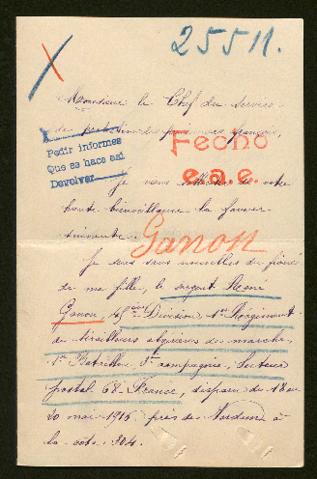 25511.
Monsieur le Chef du Service
de protection des prisonniers français,
Fecho
e.a.e.
Pedir informes
Que se hace asi
Devolver
Je vous de votre
haute bienveillance la faveur
suivante.
Ganon
Je suis sans nouvelles du fiancé
de ma fille, le sergent René
Ganon, Division, 1er Régiment
de tirailleurs algériens de marche,
1er Bataillon, compagnie, Secteur
postal 68. France, disparu du 18 au
20 mai 1916 près de Verdun à
la cote 304.